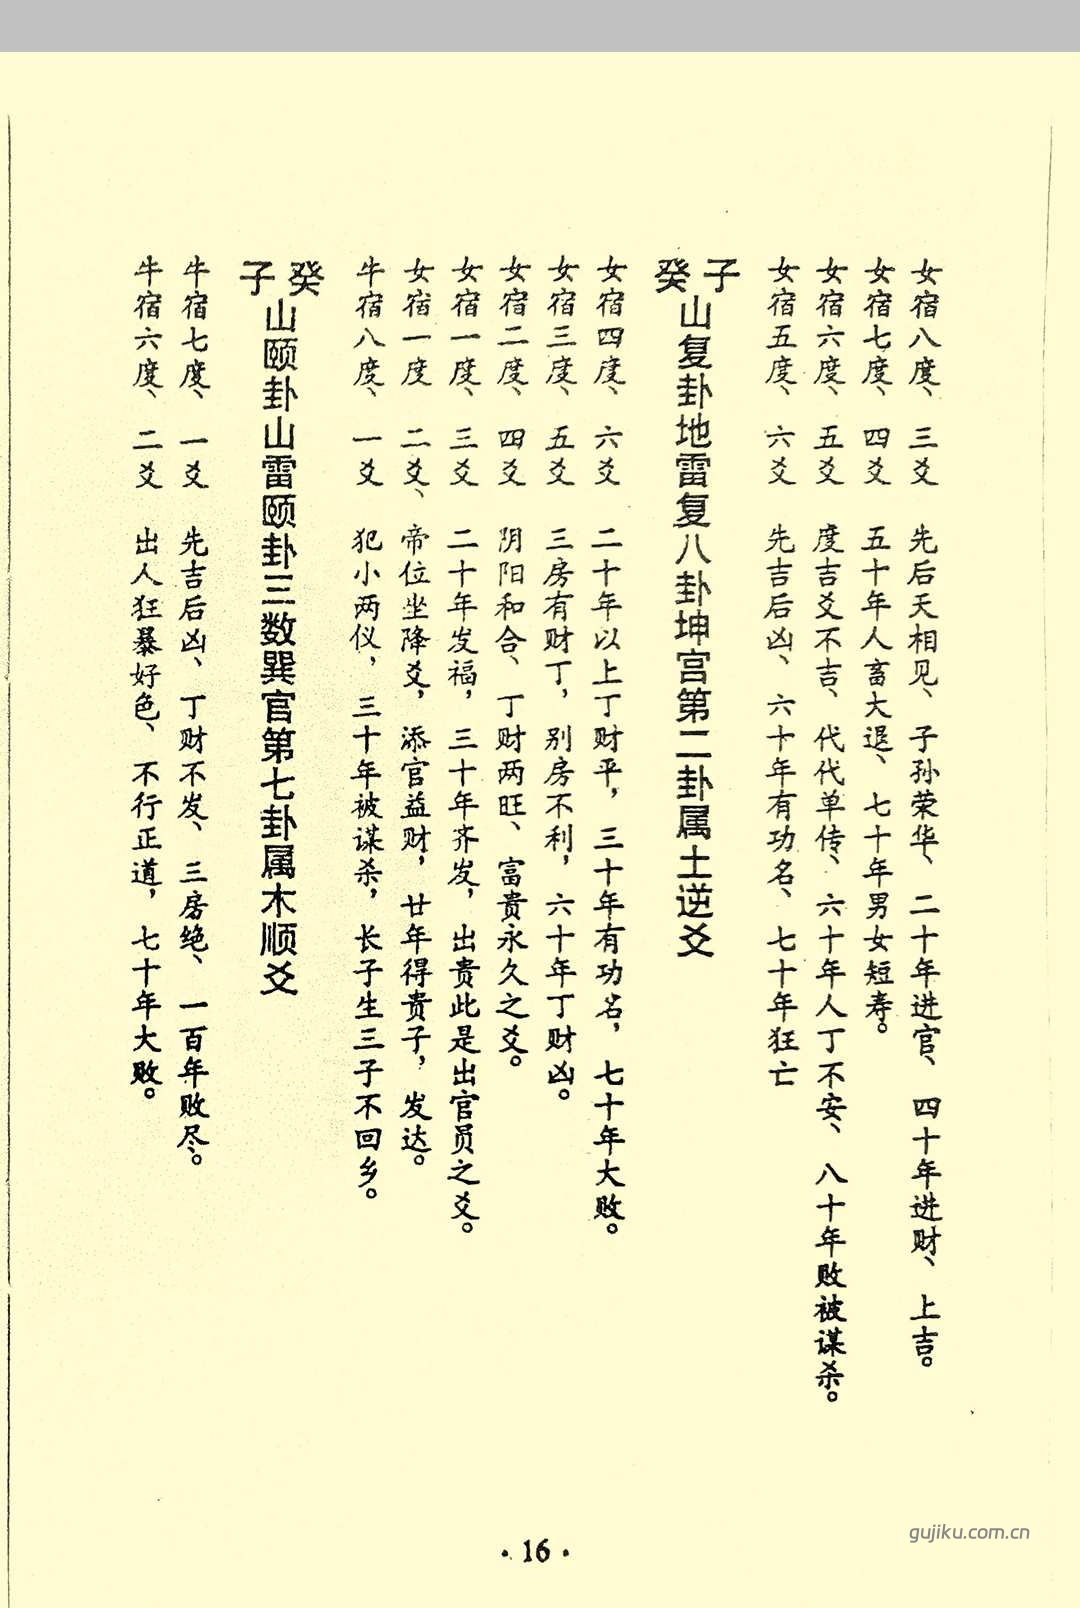 女宿八度、三爻 先后天相见、子孙荣华、二十年进官、四十年进财、上吉。
女宿七度、四爻 五十年人畜大退、七十年男女短寿。
女宿六度、五爻 度吉爻不吉、代代单传、六十年人丁不安、八十年败被谋杀。
女宿五度、六爻 先吉后凶、六十年有功名、七十年狂亡
子癸山复卦地雷复八卦坤宫第二卦属土逆爻
女宿四度、六爻 二十年以上丁财平，三十年有功名，七十年大败。
女宿三度、五爻 三房有财丁，别房不利，六十年丁财凶。
女宿二度、四爻 阴阳和合、丁财两旺、富贵永久之爻。
女宿一度、三爻 二十年发福，三十年齐发，出贵此是出官员之爻。
女宿一度 二爻、帝位坐降爻，添官益财，廿年得贵子，发达。
牛宿八度、一爻 犯小两仪，三十年被谋杀，长子生三子不回乡。
癸子山颐卦山雷颐卦三数巽官第七卦属木顺爻
牛宿七度、一爻 先吉后凶、丁财不发、三房绝、一百年败尽。
牛宿六度、二爻 出人狂暴好色、不行正道，七十年大败。
·16·
gujiku.com.cn